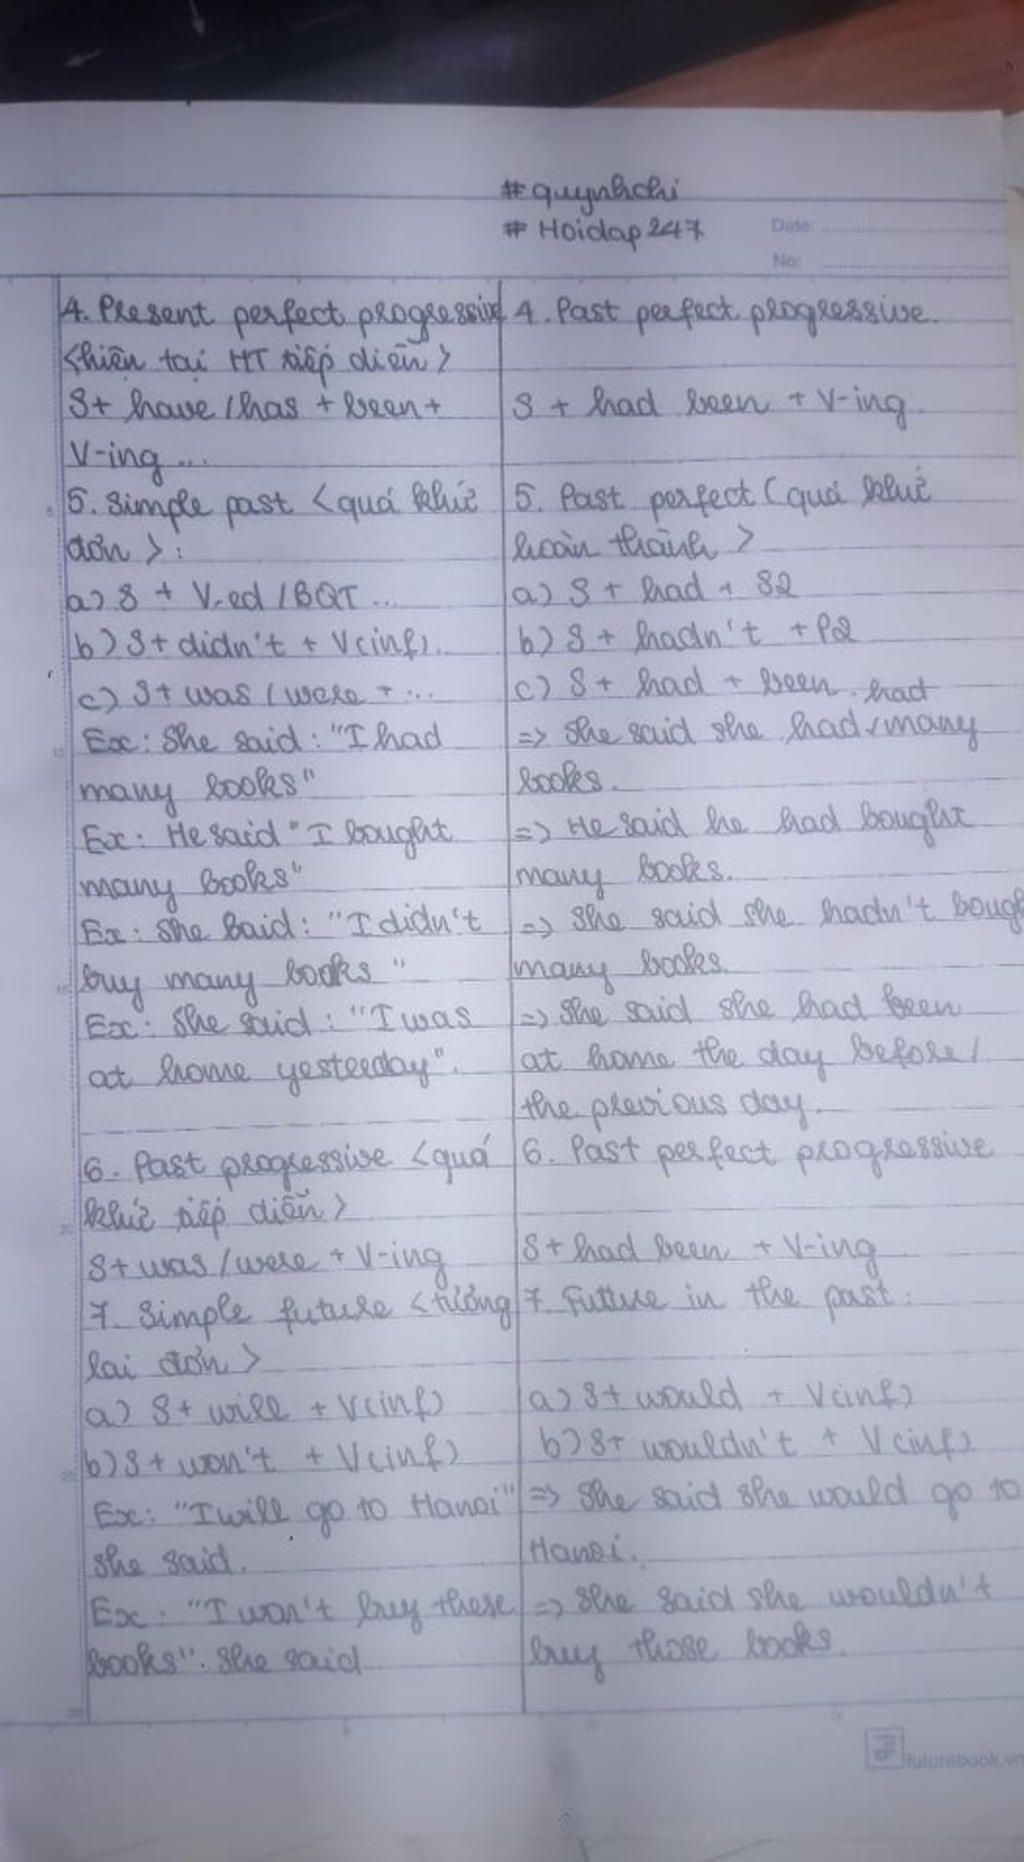 #quynhchi
# Hoidap 247
Date:
No:
4. Present perfect progressive
<hiện tại HT tiếp diễn>
S+ have / has + been +
V-ing ...
5. Simple past <quá khứ
đơn>:
a) S + V-ed / BQT ...
b) S + didn't + V(inf).
c) S + was / were + ...
Ex: She said: "I had
many books"
Ex: He said "I bought
many books"
Ex: She Said: "I didn't
buy many books "
Ex: She said: "I was
at home yesterday".
6. Past progressive <quá
khứ tiếp diễn>
S + was / were + V-ing
7. Simple future <tương
lai đơn>
a) S + will + V(inf)
b) S + won't + V(inf)
Ex: "I will go to Hanoi"
she said.
Ex: "I won't buy these
books". She said
4. Past perfect progressive.
S + had been + V-ing.
5. Past perfect (quá khứ
hoàn thành >
a) S + had + S2
b) S + hadn't + P2
c) S + had + been.
had
=> She said she had many
books.
=> He said he had bought
many books.
=> She said she hadn't bough
many books.
=> She said she had been
at home the day before /
the previous day.
6. Past perfect progressive
S + had been + V-ing
7. Future in the past:
a) S + would + V(inf)
b) S + wouldn't + V(inf)
=> She said she would go to
Hanoi.
=> She said she wouldn't
buy those books.
futurebook.vn